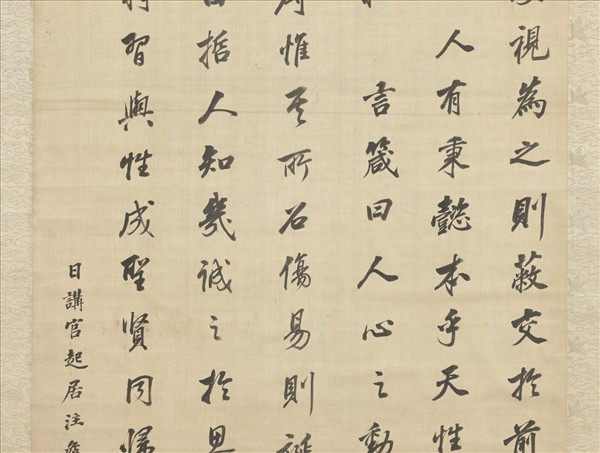 視為之則蔽交於前
人有秉懿本乎天性
言箴曰人心之動
惟其所召傷易則誕
哲人知幾誠之於思
習與性成聖賢同歸
日講官起居注